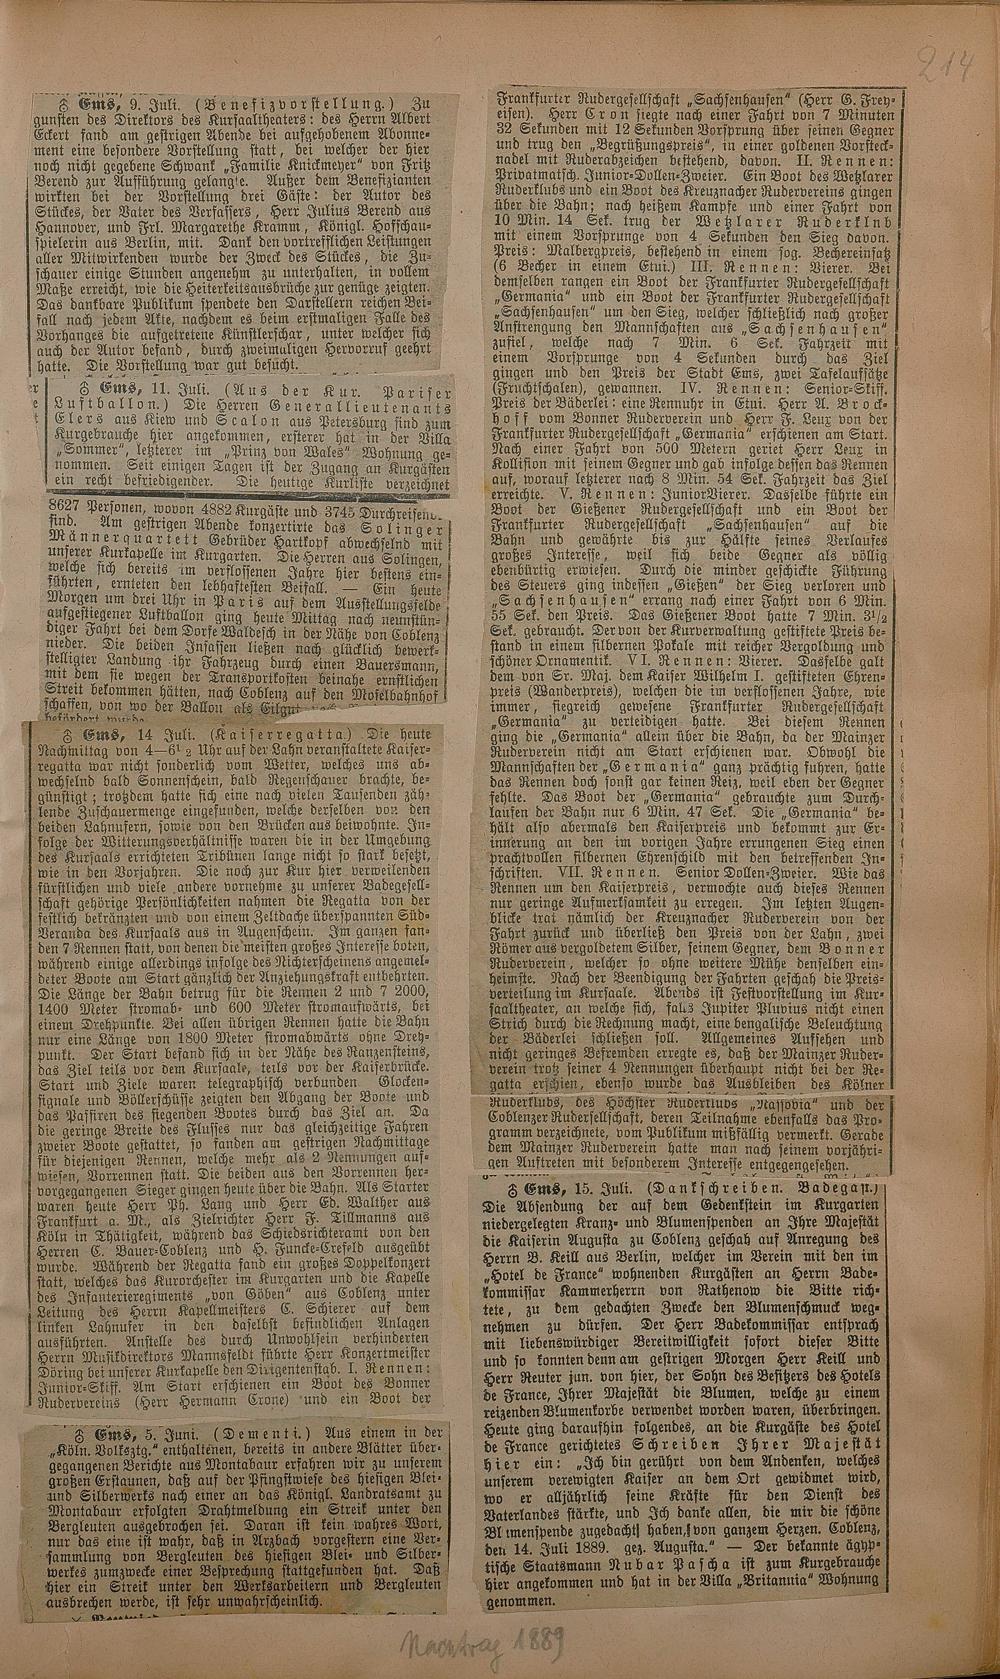 214
♂ Ems, 9. Juli. (Benefizvorstellung.) Zu
gunsten des Direktors des Kursaaltheaters: des Herrn Albert
Eckert fand am gestrigen Abende bei aufgehobenem Abonne-
ment eine besondere Vorstellung statt, bei welcher der hier
noch nicht gegebene Schwank „Familie Knickmeyer“ von Fritz
Berend zur Aufführung gelang'e. Außer dem Benefizianten
wirkten bei der Vorstellung drei Gäste: der Autor des
Stückes, der Vater des Verfassers, Herr Julius Berend aus
Hannover, und Frl. Margarethe Kramm, Königl. Hofschau-
spielerin aus Berlin, mit. Dank den vortrefflichen Leistungen
aller Mitwirkenden wurde der Zweck des Stückes, die Zu-
schauer einige Stunden angenehm zu unterhalten, in vollem
Maße erreicht, wie die Heiterkeitsausbrüche zur genüge zeigten.
Das dankbare Publikum spendete den Darstellern reichen Bei-
fall nach jedem Akte, nachdem es beim erstmaligen Falle des
Vorhanges die aufgetretene Künstlerschar, unter welcher sich
auch der Autor befand, durch zweimaligen Hervorruf geehrt
hatte. Die Vorstellung war gut besucht.
♂ Ems, 11. Juli. (Aus der Kur. Pariser
Luftballon.) Die Herren Generallieutenants
Elers aus Kiew und Scalon aus Petersburg sind zum
Kurgebrauche hier angekommen, ersterer hat in der Villa
„Sommer“, letzterer im „Prinz von Wales“ Wohnung ge-
nommen. Seit einigen Tagen ist der Zugang an Kurgästen
ein recht befriedigender. Die heutige Kurliste verzeichnet
8627 Personen, wovon 4882 Kurgäste und 3745 Durchreisende
sind. Am gestrigen Abende konzertirte das Solinger
Männerquartett Gebrüder Hartkopf abwechselnd mit
unserer Kurkapelle im Kurgarten. Die Herren aus Solingen,
welche sich bereits im verflossenen Jahre hier bestens ein-
führten, ernteten den lebhaftesten Beifall. — Ein heute
Morgen um drei Uhr in Paris auf dem Ausstellungsfelde
aufgestiegener Luftballon ging heute Mittag nach neunstün-
diger Fahrt bei dem Dorfe Waldesch in der Nähe von Coblenz
nieder. Die beiden Insassen ließen nach glücklich bewerk-
stelligter Landung ihr Fahrzeug durch einen Bauersmann,
mit dem sie wegen der Transportkosten beinahe ernstlichen
Streit bekommen hätten, nach Coblenz auf den Moselbahnhof
schaffen, von wo der Ballon als Eilgut
befördert wurde.
♂ Ems, 14 Juli. (Kaiserregatta.) Die heute
Nachmittag von 4—6½ Uhr auf der Lahn veranstaltete Kaiser-
regatta war nicht sonderlich vom Wetter, welches uns ab-
wechselnd bald Sonnenschein, bald Regenschauer brachte, be-
günstigt; trotzdem hatte sich eine nach vielen Tausenden zäh-
lende Zuschauermenge eingefunden, welche derselben von den
beiden Lahnufern, sowie von den Brücken aus beiwohnte. In-
folge der Witterungsverhältnisse waren die in der Umgebung
des Kursaals errichteten Tribünen lange nicht so stark besetzt,
wie in den Vorjahren. Die noch zur Kur hier verweilenden
fürstlichen und viele andere vornehme zu unserer Badegesell-
schaft gehörige Persönlichkeiten nahmen die Regatta von der
festlich bekränzten und von einem Zeltdache überspannten Süd-
Veranda des Kursaals aus in Augenschein. Im ganzen fan-
den 7 Rennen statt, von denen die meisten großes Interesse boten,
während einige allerdings infolge des Nichterscheinens angemel-
deter Boote am Start gänzlich der Anziehungskraft entbehrten.
Die Länge der Bahn betrug für die Rennen 2 und 7 2000,
1400 Meter stromab- und 600 Meter stromaufwärts, bei
einem Drehpunkte. Bei allen übrigen Rennen hatte die Bahn
nur eine Länge von 1800 Meter stromabwärts ohne Dreh-
punkt. Der Start befand sich in der Nähe des Ranzensteins,
das Ziel teils vor dem Kursaale, teils vor der Kaiserbrücke.
Start und Ziele waren telegraphisch verbunden Glocken-
signale und Böllerschüsse zeigten den Abgang der Boote und
das Passiren des siegenden Bootes durch das Ziel an. Da
die geringe Breite des Flusses nur das gleichzeitige Fahren
zweier Boote gestattet, so fanden am gestrigen Nachmittage
für diejenigen Rennen, welche mehr als 2 Nennungen auf-
wiesen, Vorrennen statt. Die beiden aus den Vorrennen her-
vorgegangenen Sieger gingen heute über die Bahn. Als Starter
waren heute Herr Ph. Lang und Herr Ed. Walther aus
Frankfurt a. M., als Zielrichter Herr F. Tillmanns aus
Köln in Thätigkeit, während das Schiedsrichteramt von den
Herren C. Bauer-Coblenz und H. Funcke-Crefeld ausgeübt
wurde. Während der Regatta fand ein großes Doppelkonzert
statt, welches das Kurorchester im Kurgarten und die Kapelle
des Infanterieregiments „von Göben“ aus Coblenz unter
Leitung des Herrn Kapellmeisters C. Schierer auf dem
linken Lahnufer in den daselbst befindlichen Anlagen
ausführten. Anstelle des durch Unwohlsein verhinderten
Herrn Musikdirektors Mannsfeldt führte Herr Konzertmeister
Döring bei unserer Kurkapelle den Dirigentenstab. I. Rennen:
Junior-Skiff. Am Start erschienen ein Boot des Bonner
Rudervereins (Herr Hermann Crone) und ein Boot der
♂ Ems, 5. Juni. (Dementi.) Aus einem in der
„Köln. Volksztg.“ enthaltenen, bereits in andere Blätter über-
gegangenen Berichte aus Montabaur erfahren wir zu unserem
großen Erstaunen, daß auf der Pfingstwiese des hiesigen Blei-
und Silberwerks nach einer an das Königl. Landratsamt zu
Montabaur erfolgten Drahtmeldung ein Streik unter den
Bergleuten ausgebrochen sei. Daran ist kein wahres Wort,
nur das eine ist wahr, daß in Arzbach vorgestern eine Ver-
sammlung von Bergleuten des hiesigen Blei- und Silber-
werkes zumzwecke einer Besprechung stattgefunden hat. Daß
hier ein Streik unter den Werksarbeitern und Bergleuten
ausbrechen werde, ist sehr unwahrscheinlich.
Frankfurter Rudergesellschaft „Sachsenhausen“ (Herr G. Frey-
eisen). Herr Cron siegte nach einer Fahrt von 7 Minuten
32 Sekunden mit 12 Sekunden Vorsprung über seinen Gegner
und trug den „Begrüßungspreis“, in einer goldenen Vorsteck-
nadel mit Ruderabzeichen bestehend, davon. II. Rennen:
Privatmatsch. Junior-Dollen-Zweier. Ein Boot des Wetzlarer
Ruderklubs und ein Boot des Kreuznacher Rudervereins gingen
über die Bahn; nach heißem Kampfe und einer Fahrt von
10 Min. 14 Sek. trug der Wetzlarer Ruderklub
mit einem Vorsprunge von 4 Sekunden den Sieg davon.
Preis: Malbergpreis, bestehend in einem sog. Bechereinsatz
(6 Becher in einem Etui.) III. Rennen: Vierer. Bei
demselben rangen ein Boot der Frankfurter Rudergesellschaft
„Germania“ und ein Boot der Frankfurter Rudergesellschaft
„Sachsenhausen“ um den Sieg, welcher schließlich nach großer
Anstrengung den Mannschaften aus „Sachsenhausen“
zufiel, welche nach 7 Min. 6 Sek. Fahrzeit mit
einem Vorsprunge von 4 Sekunden durch das Ziel
gingen und den Preis der Stadt Ems, zwei Tafelaufsätze
(Fruchtschalen), gewannen. IV. Rennen: Senior-Skiff.
Preis der Bäderlei: eine Rennuhr in Etui. Herr A. Brock-
hoff vom Bonner Ruderverein und Herr F. Leux von der
Frankfurter Rudergesellschaft „Germania“ erschienen am Start.
Nach einer Fahrt von 500 Metern geriet Herr Leux in
Kollision mit seinem Gegner und gab infolge dessen das Rennen
auf, worauf letzterer nach 8 Min. 54 Sek. Fahrzeit das Ziel
erreichte. V. Rennen: Junior Vierer. Dasselbe führte ein
Boot der Gießener Rudergesellschaft und ein Boot der
Frankfurter Rudergesellschaft „Sachsenhausen“ auf die
Bahn und gewährte bis zur Hälfte seines Verlaufes
großes Interesse, weil sich beide Gegner als völlig
ebenbürtig erwiesen. Durch die minder geschickte Führung
des Steuers ging indessen „Gießen“ der Sieg verloren und
„Sachsenhausen“ errang nach einer Fahrt von 6 Min.
55 Sek. den Preis. Das Gießener Boot hatte 7 Min. 3½
Sek. gebraucht. Der von der Kurverwaltung gestiftete Preis be-
stand in einem silbernen Pokale mit reicher Vergoldung und
schöner Ornamentik. VI. Rennen: Vierer. Dasselbe galt
dem von Sr. Maj. dem Kaiser Wilhelm I. gestifteten Ehren-
preis (Wanderpreis), welchen die im verflossenen Jahre, wie
immer, siegreich gewesene Frankfurter Rudergesellschaft
„Germania“ zu verteidigen hatte. Bei diesem Rennen
ging die „Germania“ allein über die Bahn, da der Mainzer
Ruderverein nicht am Start erschienen war. Obwohl die
Mannschaften der „Germania“ ganz prächtig fuhren, hatte
das Rennen doch sonst gar keinen Reiz, weil eben der Gegner
fehlte. Das Boot der „Germania“ gebrauchte zum Durch-
laufen der Bahn nur 6 Min. 47 Sek. Die „Germania“ be-
hält also abermals den Kaiserpreis und bekommt zur Er-
innerung an den im vorigen Jahre errungenen Sieg einen
prachtvollen silbernen Ehrenschild mit den betreffenden In-
schriften. VII. Rennen. Senior Dollen-Zweier. Wie das
Rennen um den Kaiserpreis, vermochte auch dieses Rennen
nur geringe Aufmerksamkeit zu erregen. Im letzten Augen-
blicke trat nämlich der Kreuznacher Ruderverein von der
Fahrt zurück und überließ den Preis von der Lahn, zwei
Römer aus vergoldetem Silber, seinem Gegner, dem Bonner
Ruderverein, welcher so ohne weitere Mühe denselben ein-
heimste. Nach der Beendigung der Fahrten geschah die Preis-
verteilung im Kursaale. Abends ist Festvorstellung im Kur-
saaltheater, an welche sich, falls Jupiter Pluvius nicht einen
Strich durch die Rechnung macht, eine bengalische Beleuchtung
der Bäderlei schließen soll. Allgemeines Aufsehen und
nicht geringes Befremden erregte es, daß der Mainzer Ruder-
verein trotz seiner 4 Nennungen überhaupt nicht bei der Re-
gatta erschien, ebenso wurde das Ausbleiben des Kölner
Ruderklubs, des Höchster Ruderklubs „Nassovia“ und der
Coblenzer Rudersellschaft, deren Teilnahme ebenfalls das Pro-
gramm verzeichnete, vom Publikum mißfällig vermerkt. Gerade
dem Mainzer Ruderverein hatte man nach seinem vorjähri-
gen Auftreten mit besonderem Interesse entgegengesehen.
♂ Ems, 15. Juli. (Dankschreiben. Badegast.)
Die Absendung der auf dem Gedenkstein im Kurgarten
niedergelegten Kranz- und Blumenspenden an Ihre Majestät
die Kaiserin Augusta zu Coblenz geschah auf Anregung des
Herrn B. Keill aus Berlin, welcher im Verein mit den im
„Hotel de France“ wohnenden Kurgästen an Herrn Bade-
kommissar Kammerherrn von Rathenow die Bitte rich-
tete, zu dem gedachten Zwecke den Blumenschmuck weg-
nehmen zu dürfen. Der Herr Badekommissar entsprach
mit liebenswürdiger Bereitwilligkeit sofort dieser Bitte
und so konnten denn am gestrigen Morgen Herr Keill und
Herr Reuter jun. von hier, der Sohn des Besitzers des Hotels
de France, Ihrer Majestät die Blumen, welche zu einem
reizenden Blumenkorbe verwendet worden waren, überbringen.
Heute ging daraufhin folgendes, an die Kurgäste des Hotel
de France gerichtetes Schreiben Ihrer Majestät
hier ein: „Ich bin gerührt von dem Andenken, welches
unserem verewigten Kaiser an dem Ort gewidmet wird,
wo er alljährlich seine Kräfte für den Dienst des
Vaterlandes stärkte, und Ich danke allen, die mir die schöne
Bl menspende zugedacht haben, von ganzem Herzen. Coblenz,
den 14. Juli 1889. gez. Augusta.“ — Der bekannte ägyp-
tische Staatsmann Nubar Pascha ist zum Kurgebrauche
hier angekommen und hat in der Villa „Britannia“ Wohnung
genommen.
Nachtrag 1889